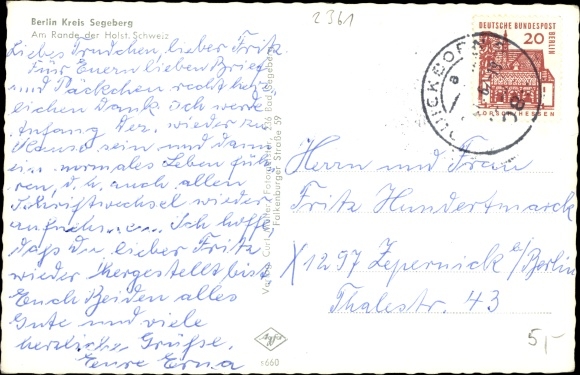 2361
Berlin Kreis Segeberg
Am Rande der Holst. Schweiz
Liebes Trudchen, lieber Fritz.
Für Euern lieben Brief
und Päckchen recht herz-
lichen Dank. Ich werde
Anfang Dez. wieder zu
Hause sein und dann
ein normales Leben füh-
ren, d. h. auch allen
Schriftwechsel wieder
aufnehmen. Ich hoffe,
daß Du lieber Fritz
wieder hergestellt bist
Euch Beiden alles
Gute und viele
herzliche Grüße.
Eure Erna
Falkenburger Straße 59
DEUTSCHE BUNDESPOST
BERLIN
20
LORSCH/HESSEN
Herrn und Frau
Fritz Hundertmarck
X 1297 Zepernick b/Berlin
Thalestr. 43
Agfa
s660
5,-